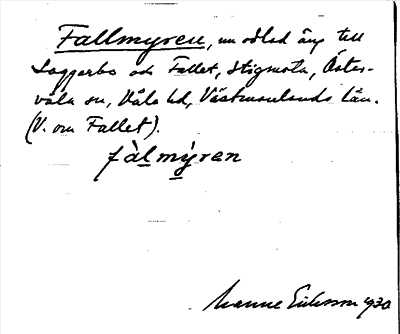 Fallmyren, nu odlad äng till
Laggarbo och Fallet, Stigmota, Öster-
våla sn, Våla hd, Västmanlands län.
(V. om Fallet).
fàlmýren
Manne Eriksson 1930